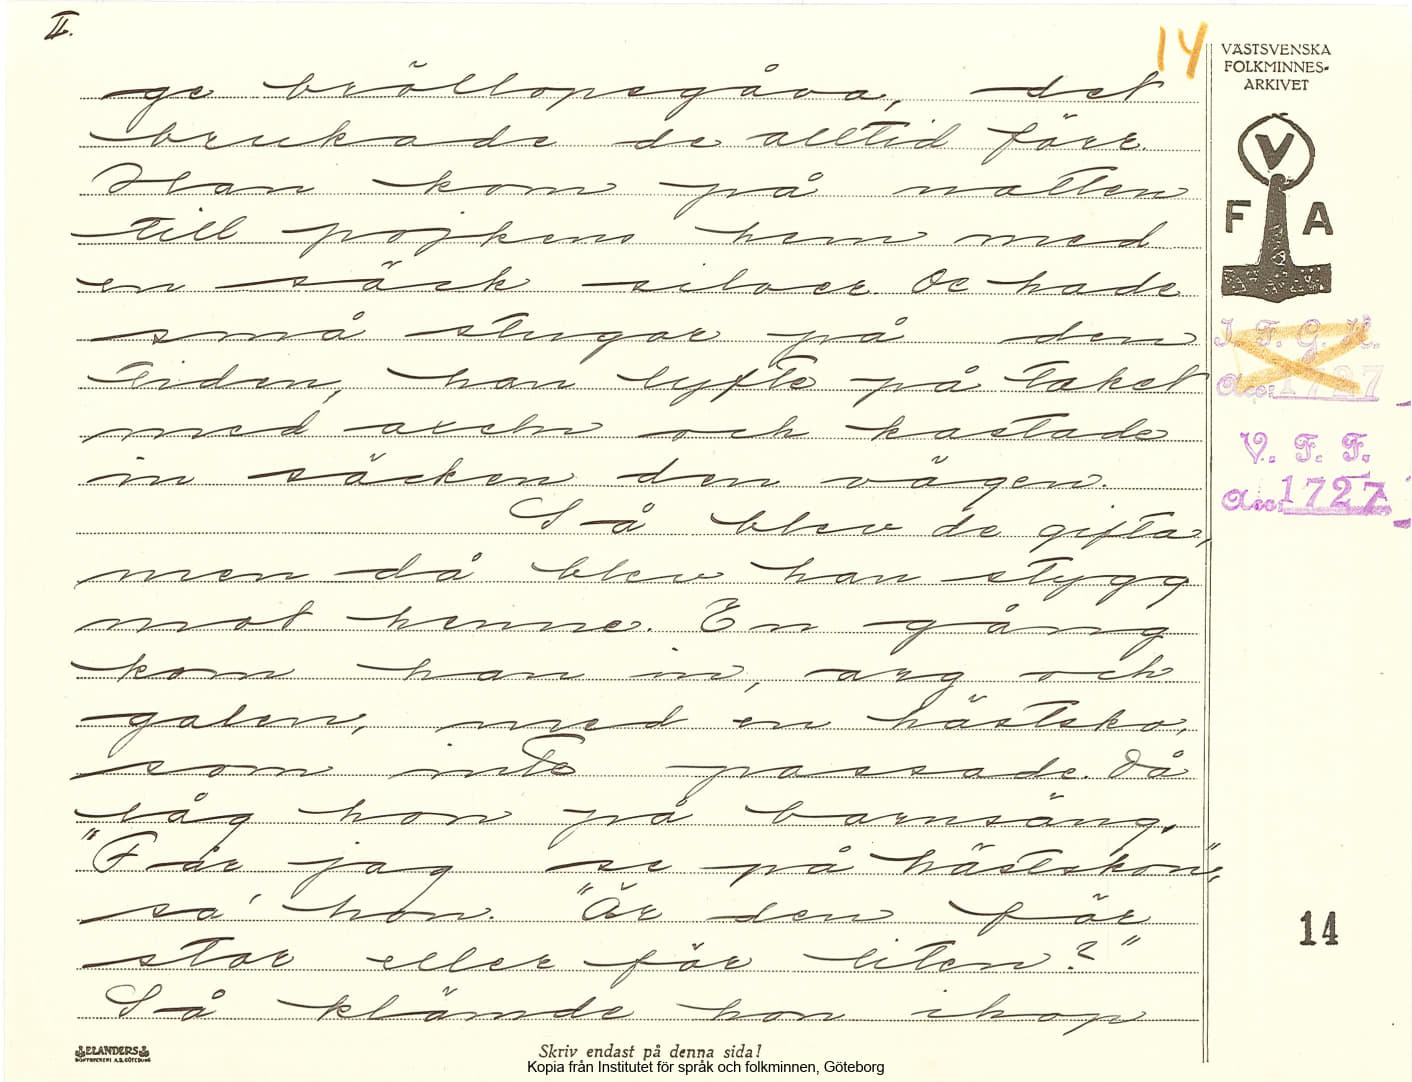 II.
14
VÄSTSVENSKA
FOLKMINNES-
ARKIVET
V
F A
I. F. G. H.
Acc: 1727
V. F. F.
Acc: 1727
ge bröllopsgåva, det
brukade de alltid förr.
Han kom på natten
till pojkens hem med
en säck silver. De hade
små stugor på den
tiden, han lyfte på taket
med axeln och kastade
in säcken den vägen.
Så blev de gifta,
men då blev han stygg
mot henne. En gång
kom han in, arg och
galen, med en hästsko,
som inte passade. Då
låg hon på barnsäng.
"Får jag se på hästskon",
sa' hon. "Är den för
stor eller för liten?"
Så klämde hon ihop
14
ELANDERS
BOKTRYCKERI A.B. GÖTEBORG
Skriv endast på denna sida!
Kopia från Institutet för språk och folkminnen, Göteborg